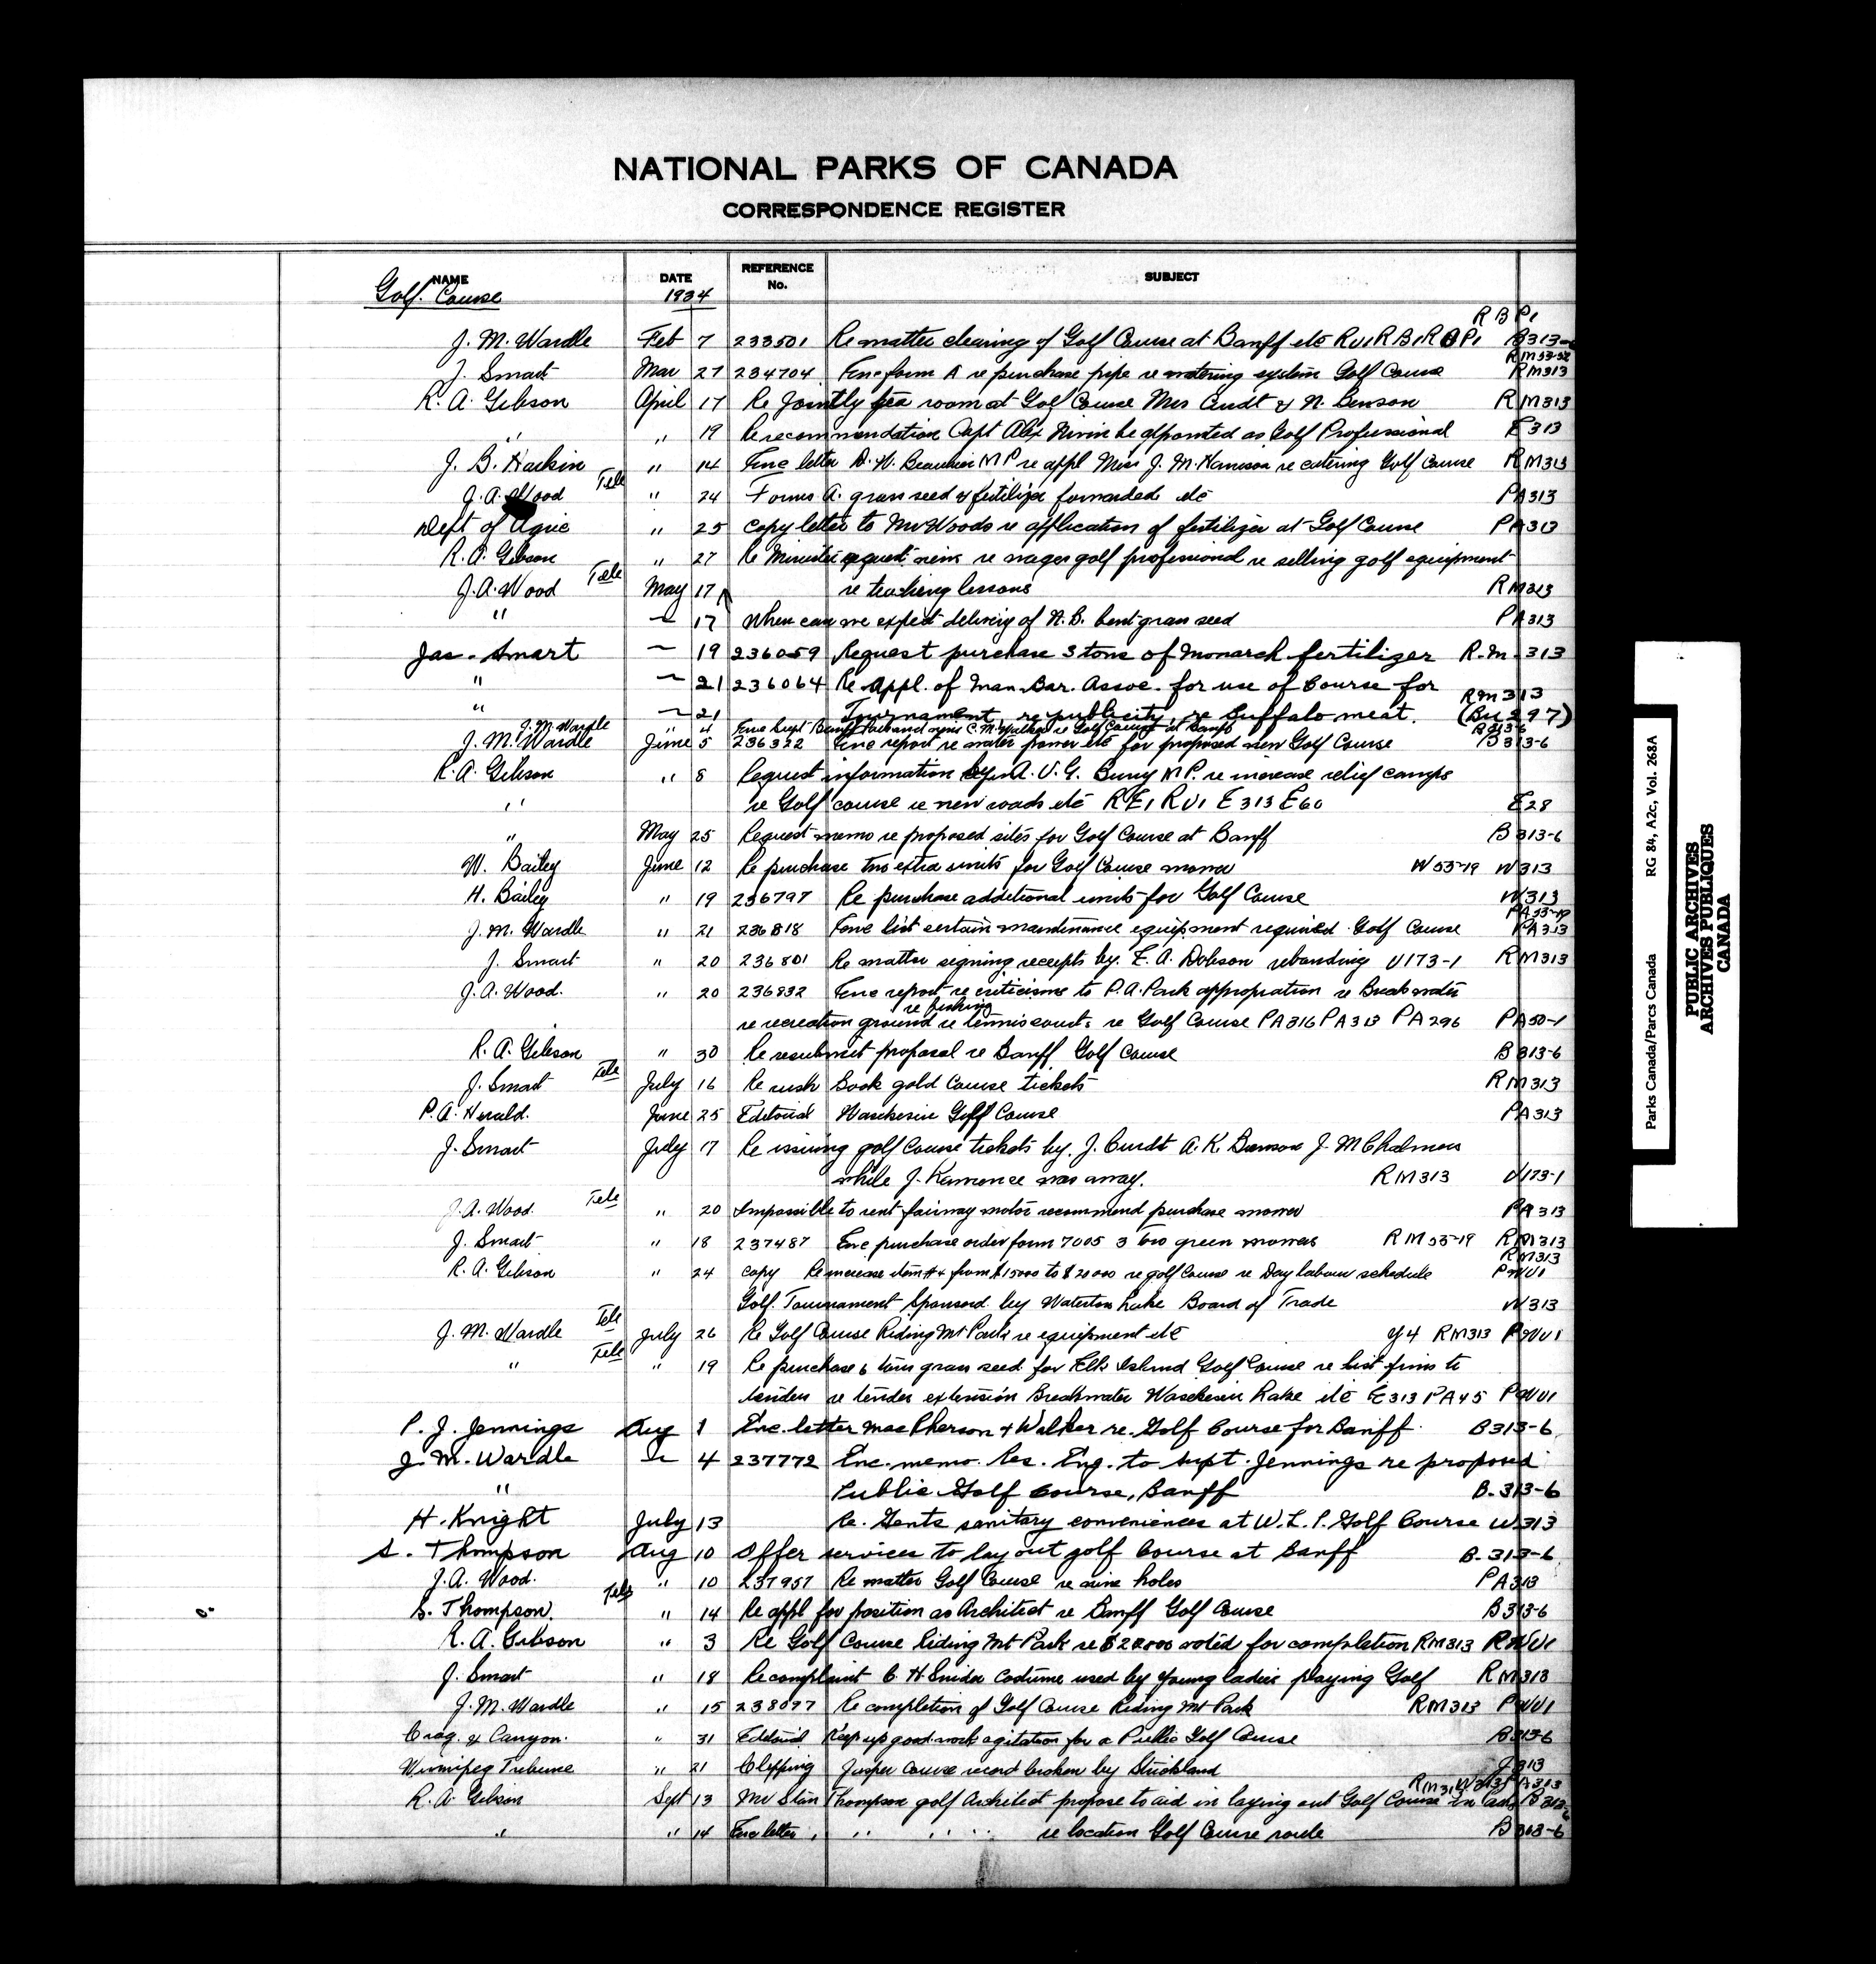 NATIONAL PARKS OF CANADA
CORRESPONDENCE REGISTER
NAME DATE REFERENCE No. SUBJECT
Golf Course 1934
R B P1
J. M. Wardle Feb 7 233501 Re matter clearing of Golf Course at Banff etc B313-6
RM53-52
J. Smart Mar 27 234704 Enc form A re purchase pipe re watering system Golf Course RM313
R. A. Gibson April 17 Re Jointly tea room at Golf Course Mrs & N. Benson RM313
" " 19 Re recommendation Capt Alex be appointed as Golf Professional E313
J. B. Harkin " 14 Enc letter M P re appl Miss J. M. Harrison re catering Golf Course RM313
J. A. Wood Tele " 24 Forms A. grass seed & fertilizer forwarded etc PA313
Dept of Agric " 25 copy letter to Mr Woods re application of fertilizer at Golf Course PA313
R. A. Gibson " 27 Re Minister request views re wages golf professional re selling golf equipment
J. A. Wood Tele May 17 re teaching lessons RM313
" 17 When can we expect delivery of N.B. bent grass seed PA313
Jas. Smart 19 236059 Request purchase 3 tons of Monarch fertilizer R.M. 313
" 21 236064 Re Appl. of Man. Bar. Assoc. for use of Course for RM313
" 21 Tournament re publicity, re Buffalo meat. (Bu297)
J. M. Wardle " 4 Enc Supt Banff Park and views C. M. Walker re Golf Course at Banff B313-6
J. M. Wardle June 5 236322 Enc report re water power etc for proposed new Golf Course B313-6
R. A. Gibson " 8 Request information by A. U. G. Bury M P. re increase relief camps
" re Golf course re new roads etc RE1 RU1 E313 E60 E28
" May 25 Request memo re proposed sites for Golf Course at Banff B313-6
W. Bailey June 12 Re purchase two extra units for Golf Course mower W53-19 W313
H. Bailey " 19 236797 Re purchase additional units for Golf Course W313
PA53-19
J. M. Wardle " 21 236818 Enc list certain maintenance equipment required Golf Course PA313
J. Smart " 20 236801 Re matter signing receipts by E. A. Dobson rebonding U173-1 RM313
J. A. Wood. " 20 236832 Enc report re criticisms to P.A. Park appropriation re Breakwater
re fishing
re recreation ground re tennis courts re Golf Course PA316 PA313 PA296 PA50-1
R. A. Gibson " 30 Re resubmit proposal re Banff Golf Course B313-6
J. Smart Tele July 16 Re rush Book gold Course tickets RM313
P. A. Herald. June 25 Editorial Waskesiu Golf Course PA313
J. Smart July 17 Re issuing golf Course tickets by. J. A. K. J. M Chalmers
while J. was away. RM313 U173-1
J. A. Wood. Tele " 20 Impossible to rent fairway motor recommend purchase mower PA313
J. Smart " 18 237487 Enc purchase order form 7005 3 Toro green mowers RM53-19 RM313
RM313
R. A. Gibson " 24 copy Re increase item #4 from $15000 to $20000 re golf Course re Day labour schedule PWU1
Golf Tournament Sponsord by Waterton Lake Board of Trade W313
J. M. Wardle Tele July 26 Re Golf Course Riding Mt Park re equipment etc Y4 RM313 PWU1
" Tele " 19 Re purchase grass seed for Elk Island Golf Course re list firms to
tender re tender extension Breakwater Waskesiu Lake etc E313 PA45 PWU1
P. J. Jennings Aug 1 Enc. letter MacPherson & Walker re. Golf Course for Banff. B313-6
J. M. Wardle 4 237772 Enc. memo. Res. Eng. to Supt. Jennings re proposed
" Public Golf Course, Banff B-313-6
H. Knight July 13 Re. Gents sanitary conveniences at W.L.P. Golf Course W313
S. Thompson Aug 10 Offer services to lay out golf Course at Banff B-313-6
J. A. Wood. " 10 237957 Re matter Golf Course re nine holes PA313
S. Thompson. Tele " 14 Re appl for position as Architect re Banff Golf Course B313-6
R. A. Gibson " 3 Re Golf Course Riding Mt Park re voted for completion RM313 PWU1
J. Smart " 18 Re complaint C. H. Snider Costume used by Young ladies playing Golf RM313
J. M. Wardle " 15 238097 Re completion of Golf Course Riding Mt Park RM313 PWU1
Crag & Canyon. " 31 Editorial Keep up good work agitation for a Public Golf Course B313-6
Winnipeg Tribune " 21 Clipping Jasper Course record broken by Strickland J313
R. A. Gibson Sept 13 Mr Stan Thompson golf Architect propose to aid in laying out Golf Course
" " 14 Enc letter " " " re location Golf Course route B313-6
RG 84, A2c, Vol. 268A
Parks Canada/Parcs Canada
PUBLIC ARCHIVES
ARCHIVES PUBLIQUES
CANADA